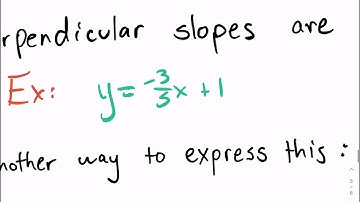 rpendicular slopes are
Ex: y = -3/5 x + 1
nother way to express this: